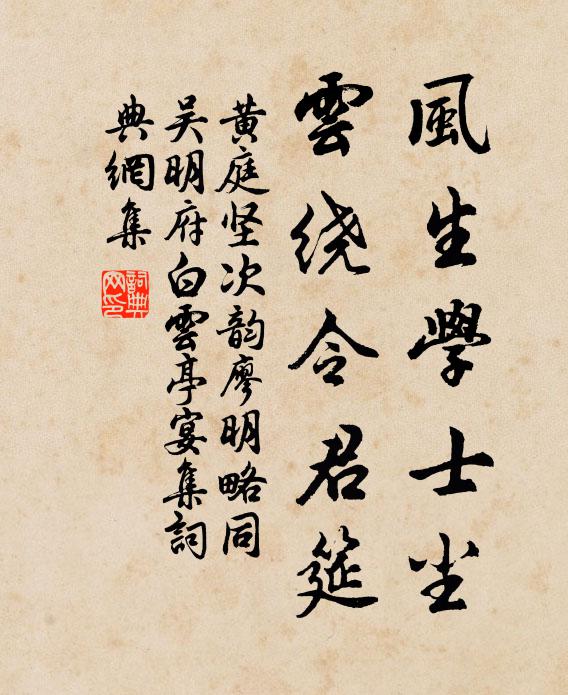 風生學士尘
雲绕令君筵
黄庭坚次韵廖明略同
吴明府白雲亭宴集詞
典網集
詞典
网印